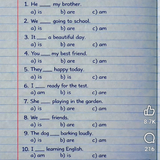 1. He ___ my brother.
a) is b) are c) am
2. We ___ going to school.
a) is b) are c) am
3. It ___ a beautiful day.
a) is b) are c) am
4. You ___ my best friend.
a) is b) are c) am
5. They ___ happy today.
a) is b) are c) am
6. I ___ ready for the test.
a) am b) is c) are
7. She ___ playing in the garden.
a) is b) are c) am
8. We ___ friends.
a) is b) are c) am
9. The dog ___ barking loudly.
a) is b) are c) am
10. I ___ learning English.
a) am b) is c) are
8.7K
216